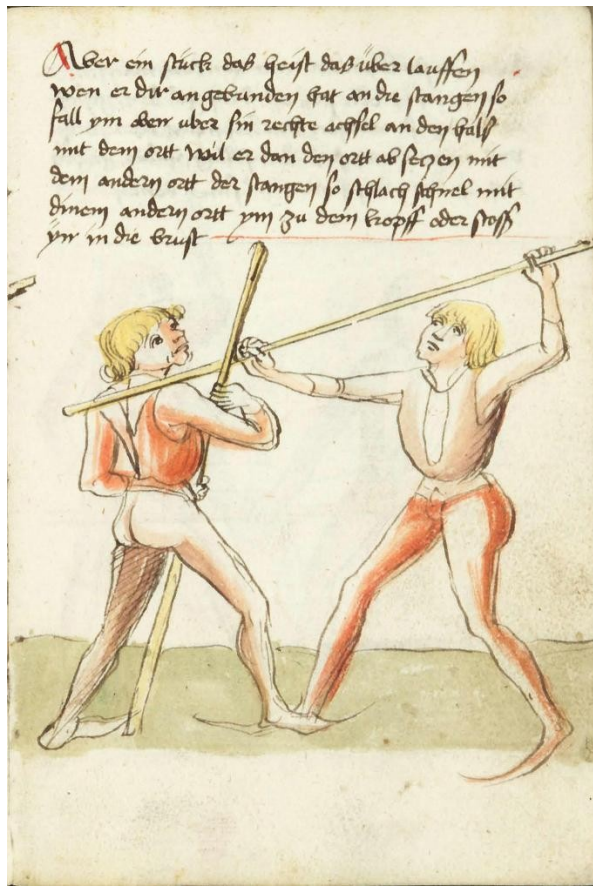 Aber ein stuck das heist das über lauffen
wen er dir angebunden hat an die stangen so
fall ym oben uber sin rechte achsel an den hals
mit dem ortt wil er dan den ortt ab seczen mit
dem andern ortt der stangen so schlach schnel mit
dinem andern ortt ym zu dem kropff oder stoss
yn in die brust